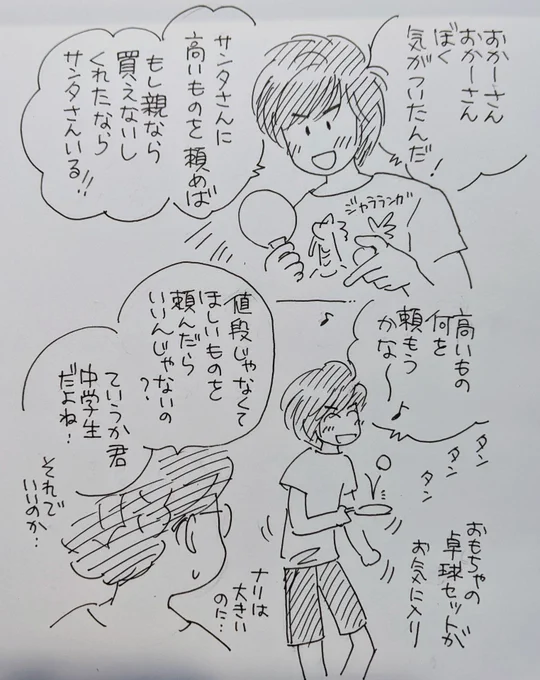 おかーさん
おかーさん
ぼく
気がついたんだ!
サンタさんに
高いものを頼めば
もし親なら
買えないし
くれたなら
サンタさんいる!!
ジャラランガ
高いもの
何を
頼もう
かな〜♪
♪
タン
タン
タン
おもちゃの
卓球セットが
お気に入り
値段じゃなくて
ほしいものを
頼んだら
いいんじゃないの
?
ていうか君
中学生
だよね!
それで
いいのか…
ナリは
大きい
のに…